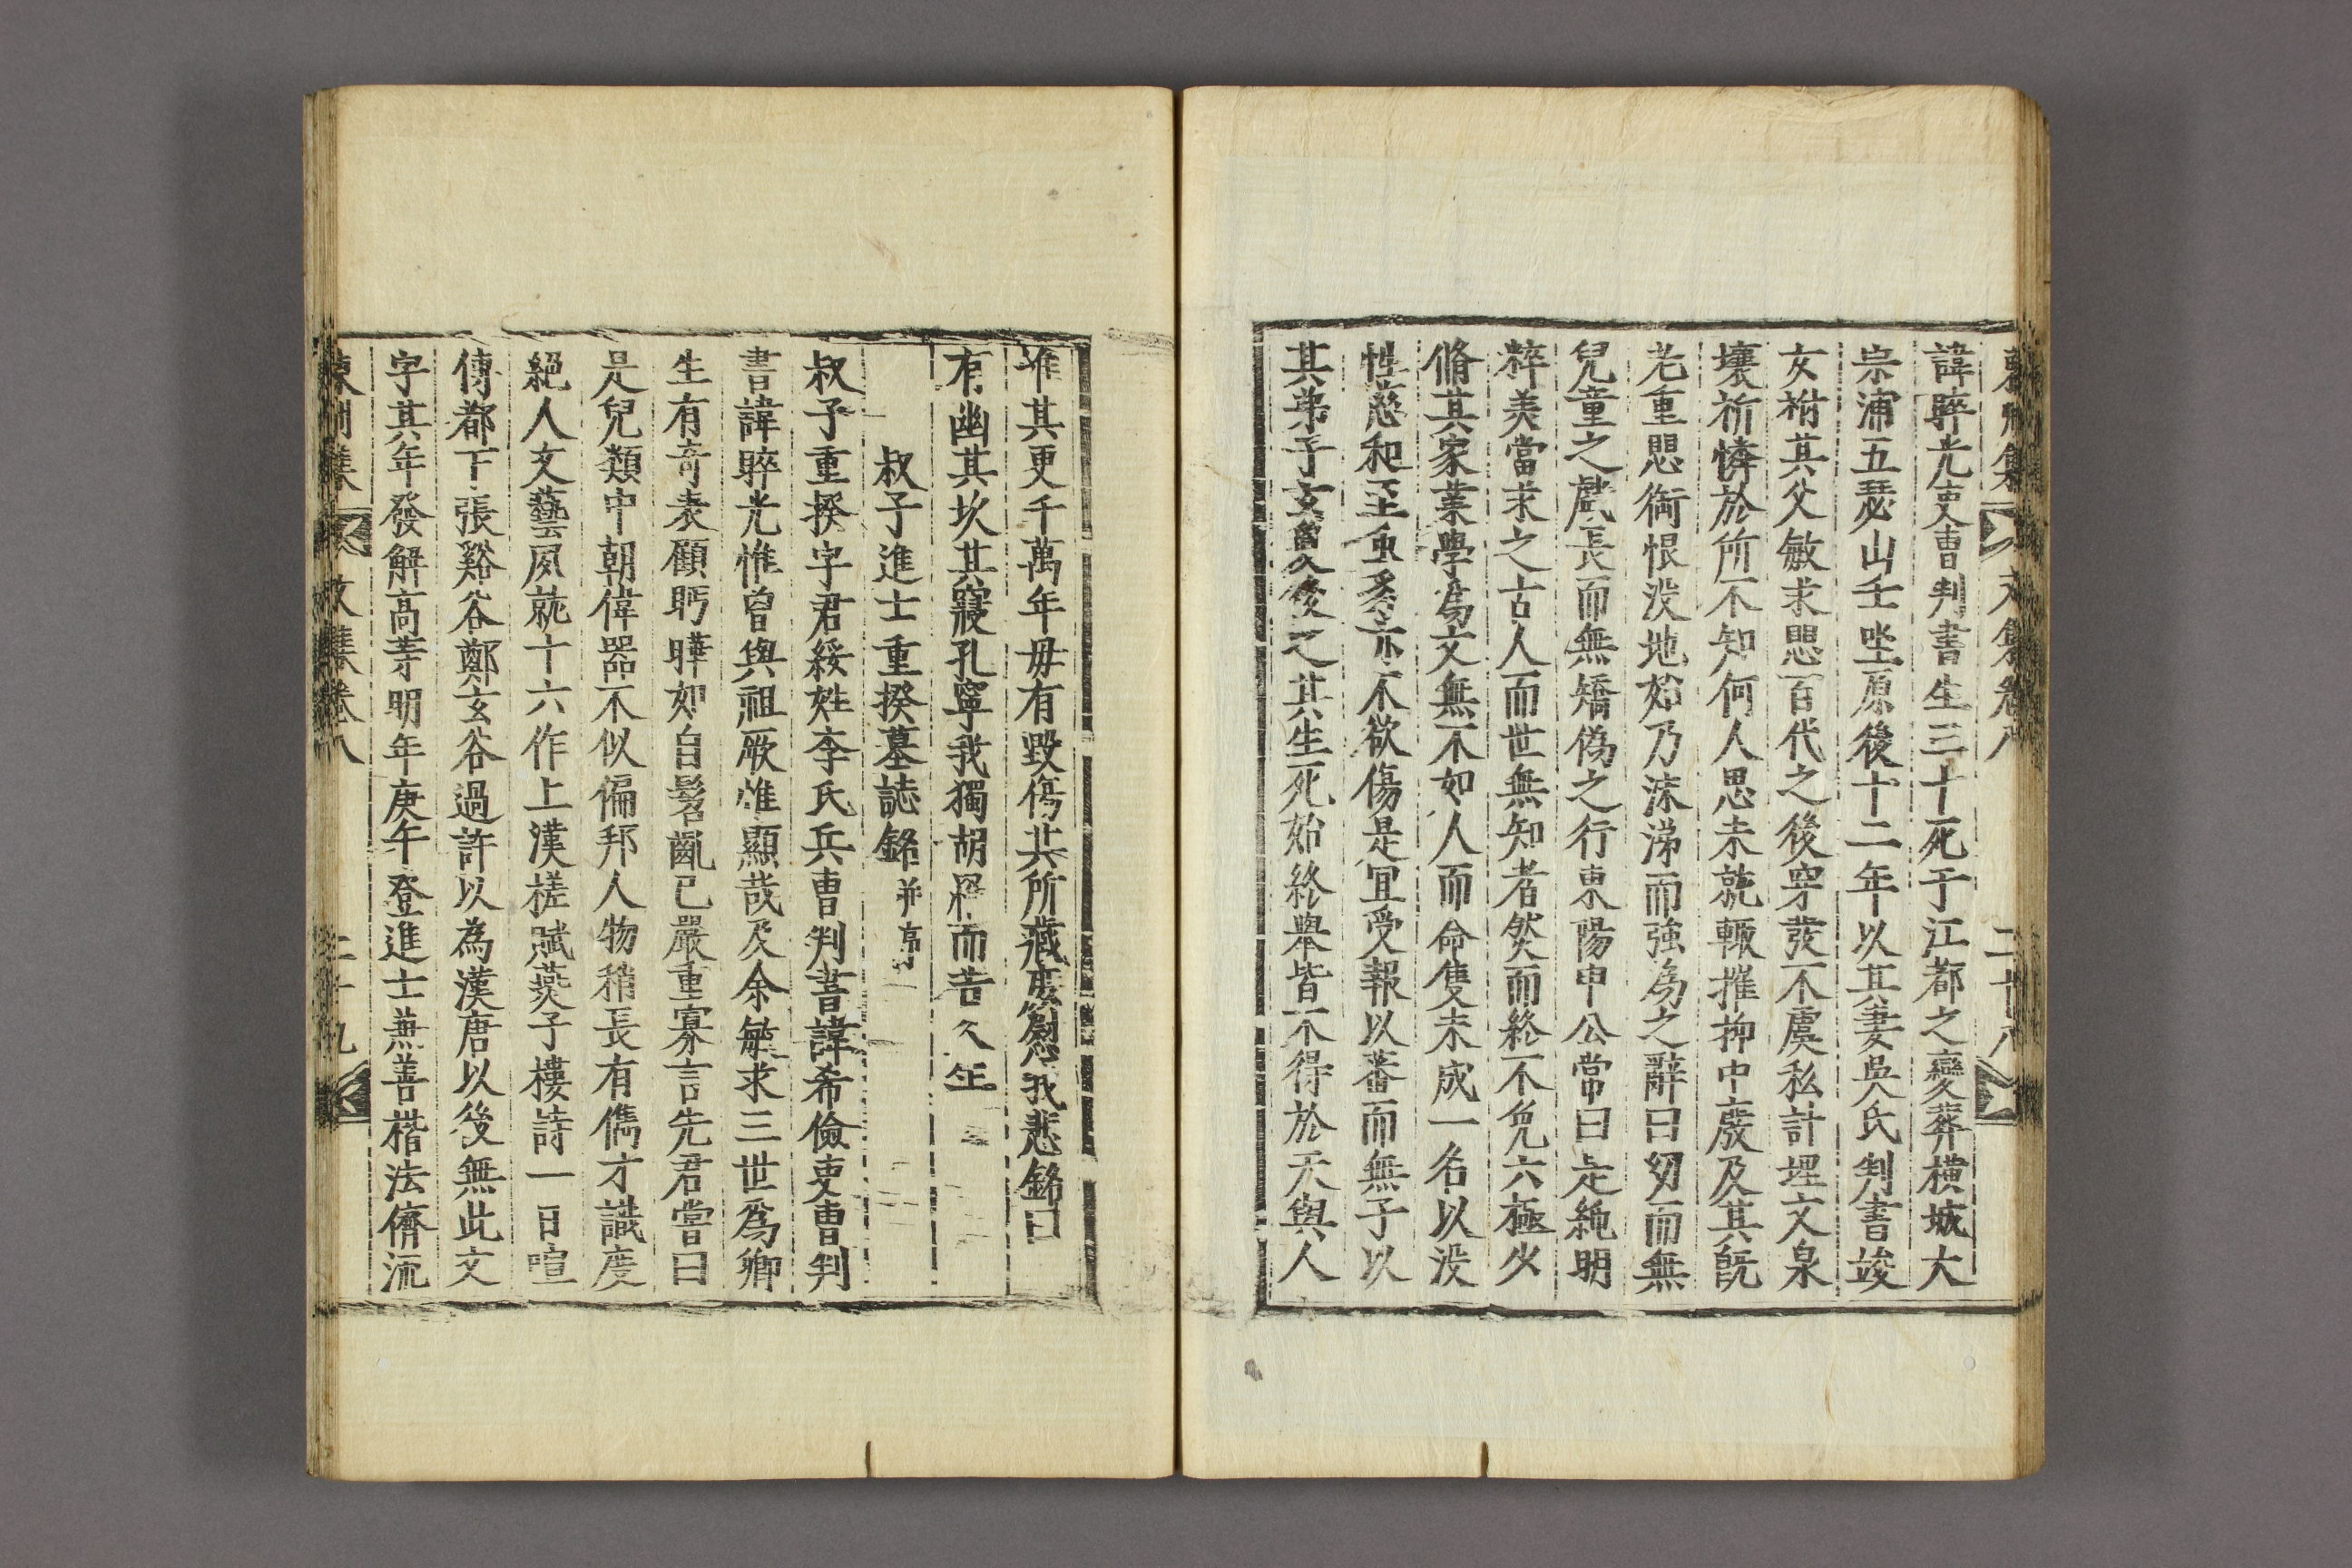 東州集 文集卷八 二十八
諱睟光吏曹判書生三十死于江都之變葬橫城大
宗浦五瑟山壬坐原後十二年以其妻吳氏判書竣
女祔其父敏求愳百代之後穿發不虞私計埋文泉
壤祈憐於所不知何人思未就輒摧抑中廢及其旣
老重愳銜恨沒地始乃沫涕而強爲之辭曰幼而無
兒童之戱長而無矯僞之行東陽申公常曰是純明
粹美當求之古人而世無知者焂而終不免六極少
脩其家業學爲文無不如人而命隻未成一名以沒
性慈和至重豸亦不欲傷是宜受報以蕃而無子以
其弟子玄曾後之其生死始終擧皆不得於天與人
惟其更千萬年毋有毀傷其所藏庶慰我悲銘曰
有幽其坎其窽孔寧我獨胡罪而苦久生
叔子進士重揆墓誌銘 幷序
叔子重揆字君綏姓李氏兵曹判書諱希儉吏曹判
書諱睟光惟曾與祖厥惟顯哉及余敏求三世爲卿
生有奇表顧眄曄如自髫齓已嚴重寡言先君嘗曰
是兒類中朝偉器不似偏邦人物稍長有儁才識度
絕人文藝夙就十六作上漢槎賦燕子樓詩一日喧
傳都下張谿谷鄭玄谷過許以爲漢唐以後無此文
字其年發解高等明年庚午登進士兼善楷法儕流
東州集 文集卷八 二十九